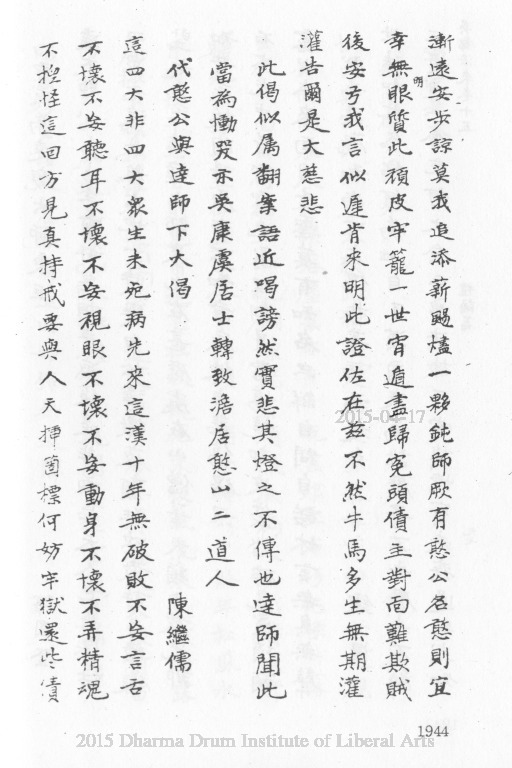 漸遠安步諒莫我追添薪賜燼一夥鈍師厥有憨公名憨則宜
幸無眼明質此頑皮牢籠一世宵遁盡歸冤頭債主對面難欺賊
後安弓我言似遲肯來明此證佐在茲不然牛馬多生無期灌
灌告爾是大慈悲
此偈似屬翻案語近喝謗然實悲其燈之不傳也達師聞此
當為慟哭示吳康虞居士轉致澹居憨山二道人
代憨公與達師下大偈 陳繼儒
這四大非四大衆生未死病先來這漢十年無破敗不妄言舌
不壞不妄聽耳不壞不妄視眼不壞不妄動身不壞不弄精魂
不捏怪這回方見真持戒要與人天揷箇標何妨牢獄還些債
1944
2015-04-17
2015 Dharma Drum Institute of Liberal Arts